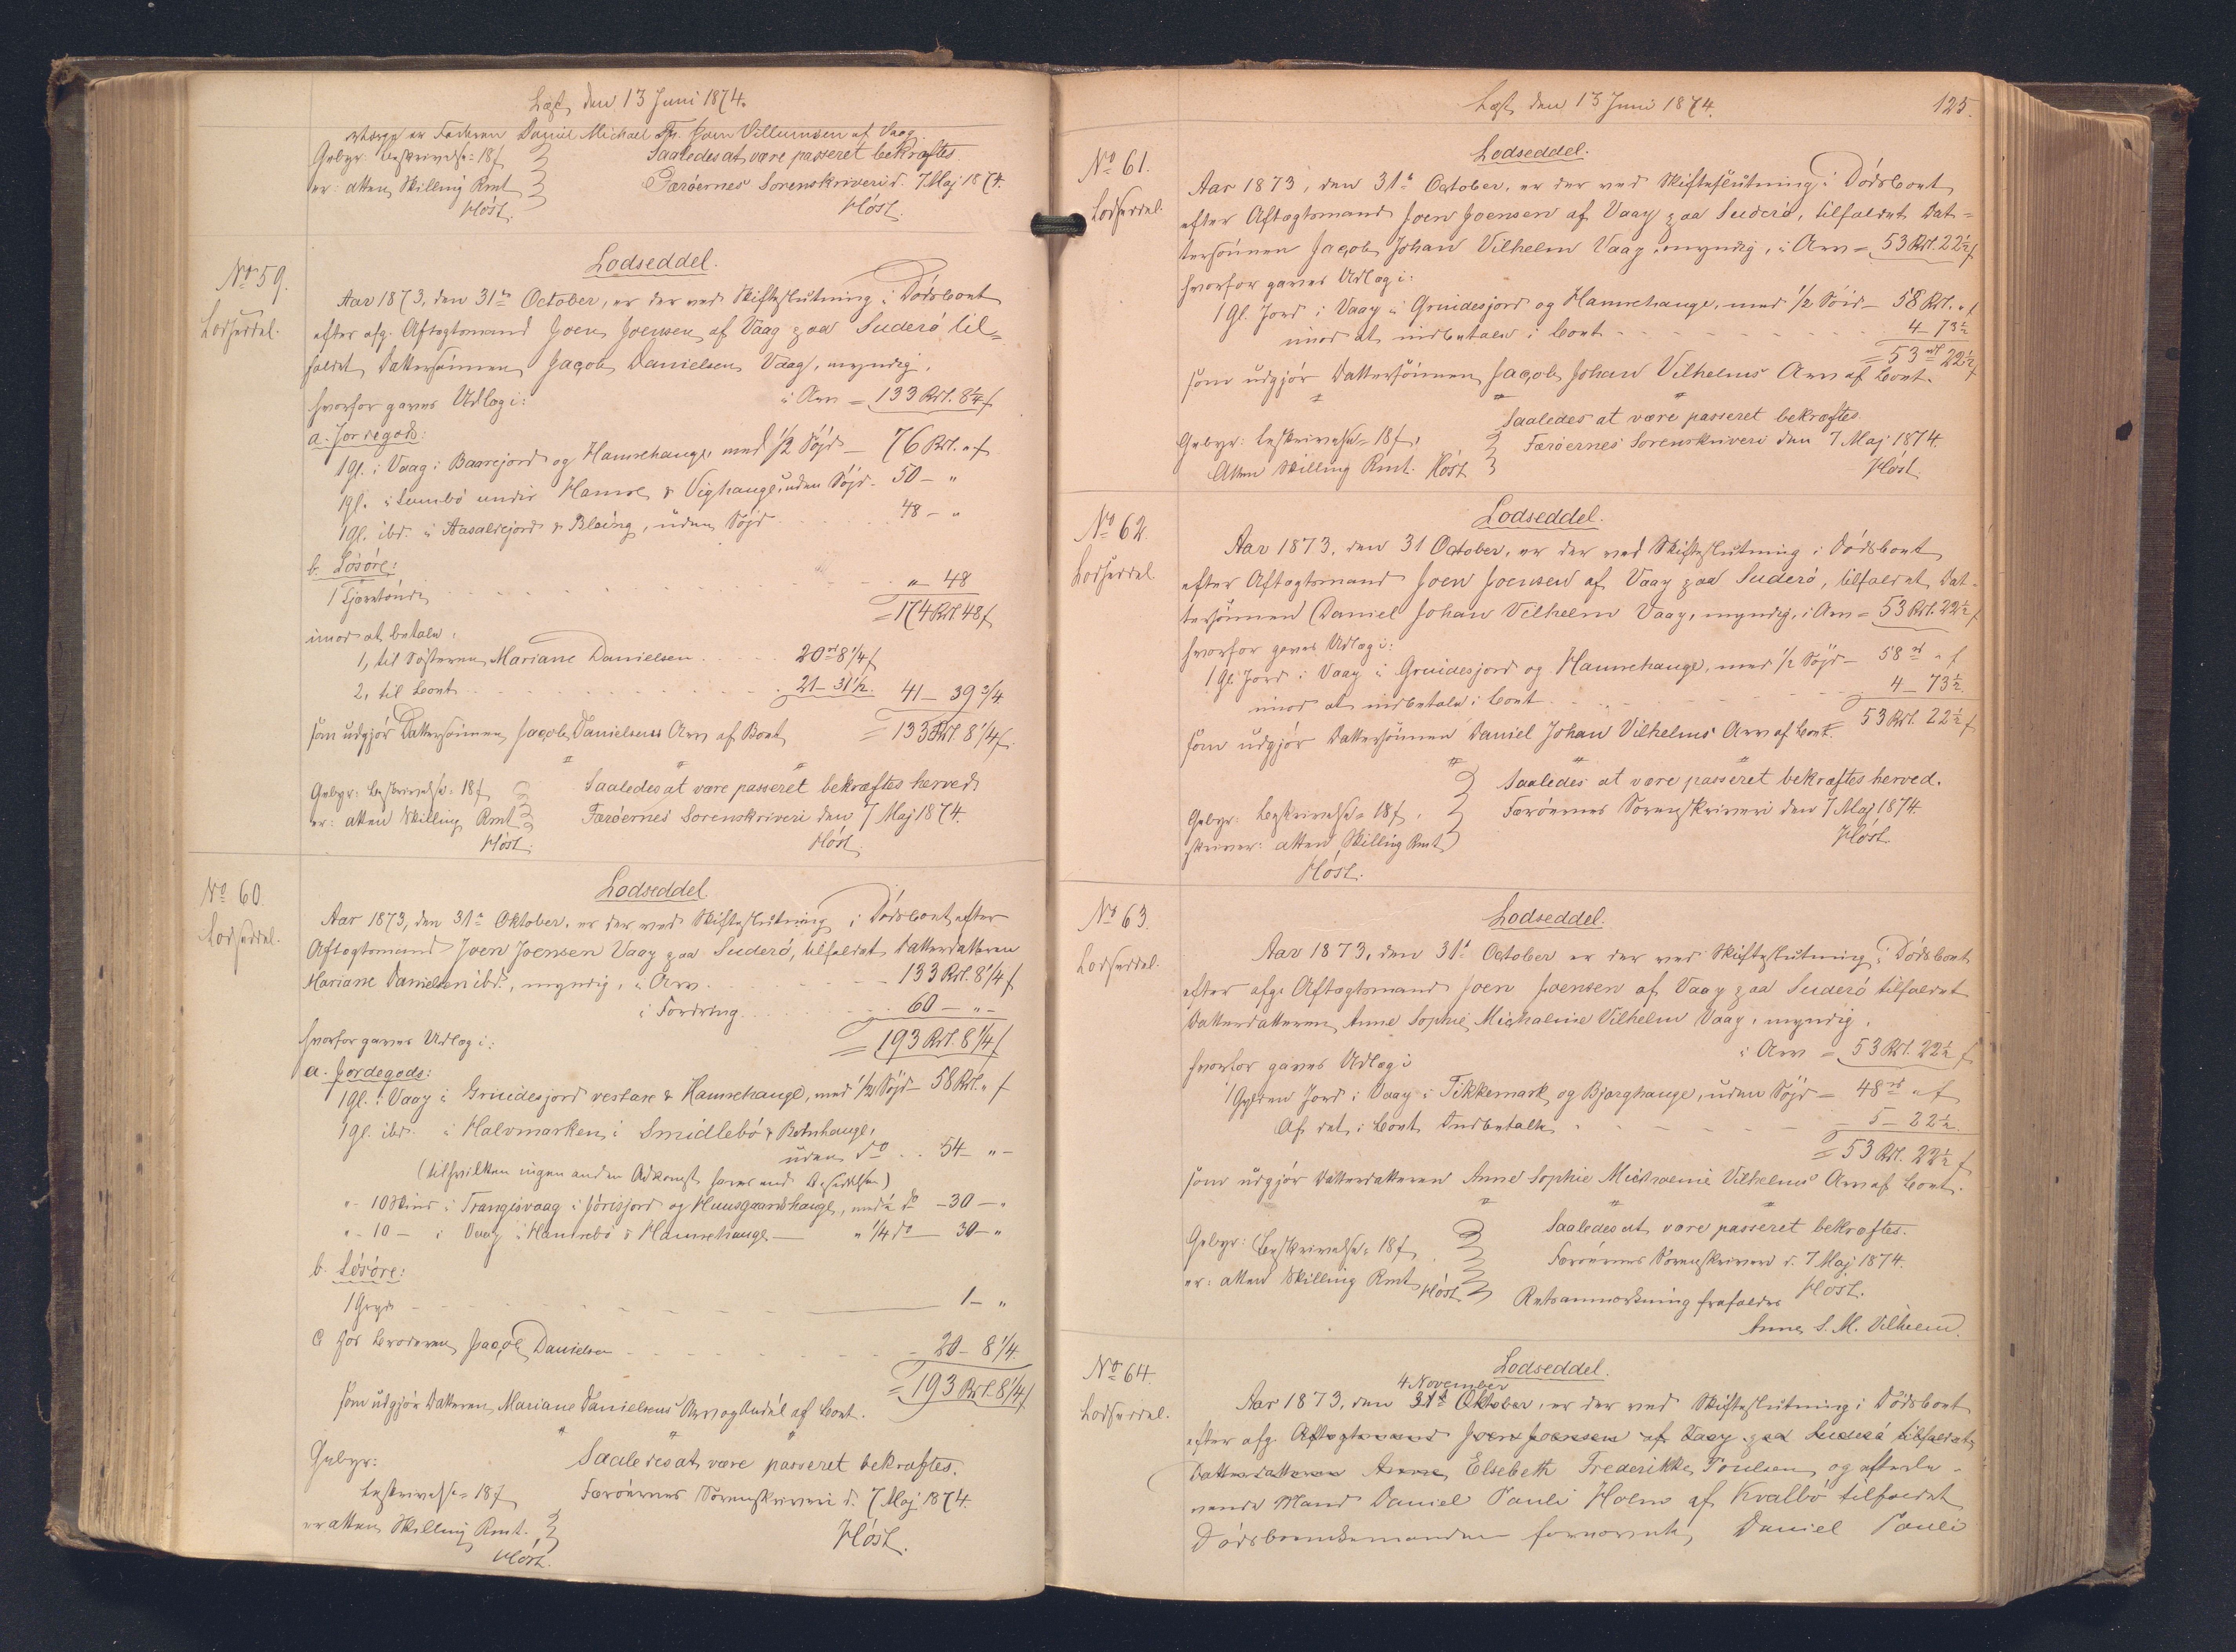 Læst den 13 Juni 1874.
Værge er Faderen Daniel Michael Fr. Joen Villumsen af Vaag.
Gebyr: Beskrivelse = 18 f
er: atten Skilling Rmt
Høst.
Saaledes at være passeret bekræftes.
Færöernes Sorenskriveri d. 7 Maj 1874.
Høst.
No 59.
Lodseddel.
Lodseddel.
Aar 1873, den 31te October, er der ved Skifteslutning i Dödsboet
efter afg. Aftægtsmand Joen Joensen af Vaag paa Suderö til-
faldet Dattersönnen Jacob Danielsen Vaag, myndig,
i Arv = 133 Rdl. 8 1/4 f
hvorfor gaves Udlæg i:
a. Jordegods:
1 Gl. i Vaag i Baarejord og Hamrehauge med 1/2 Söjd — 76 Rdl. „ f
1 Gl. i Lumbö under Hamre & Vighauge, uden Söjd - 50 — „
1 Gl. ibd. i Aasaldejord & Blaing, uden Söjd 48 — „
b. Lösöre:
1 Tjæretönde „ 48
= 174 Rdl. 48 f
imod at betale:
1, til Söstren Mariane Danielsen 20 rd 8 1/4 f
2, til Boet 21 — 31 1/2. 41 — 39 3/4
som udgjör Dattersönnen Jacob Danielsens Arv af Boet = 133 Rdl. 8 1/4 f.
Gebyr: Beskrivelse = 18 f
er: atten Skilling Rmt
Høst.
Saaledes at være passeret bekræftes herved.
Færöernes Sorenskriveri den 7 Maj 1874.
Høst.
No 60.
Lodseddel.
Lodseddel.
Aar 1873, den 31te Oktober, er der ved Skifteslutning i Dödsboet efter
Aftægtsmand Joen Joensen Vaag paa Suderö, tilfaldet Datterdatteren
Mariane Danielsen ibd., myndig, i Arv 133 Rdl. 8 1/4 f
i Fordring 60 — „ —
hvorfor gaves Udlæg i: = 193 Rdl. 8 1/4 f
a. Jordegods:
1 Gl. i Vaag i Gruidesjord vestare & Hamrehauge, med 1/2 Söjd — 58 Rdl. „ f
1 Gl. ibd. i Halvmarken i Smidlebö & Botnhauge,
uden do 54 „ —
(tilhvilken ingen anden Adkomst haves end Besiddelsen)
„ - 10 Skind i Trangisvaag i Jörisjord og Huusgaardshauge, med do — 30 — „
„ - 10 — i Vaag i Hamrebö & Hamrehauge — „ 1/4 do — 30 — „
b. Lösöre:
1 Gryde 1 — „
C hos Broderen Jacob Danielsen 20 — 8 1/4.
= 193 Rdl. 8 1/4 f
som udgjör Datteren Mariane Danielsens Arv og Andel af Boet.
Gebyr:
Beskrivelse = 18 f
er atten Skilling Rmt.
Høst.
Saaledes at være passeret bekræftes.
Færöernes Sorenskriveri d. 7 Maj 1874.
Høst.
Læst den 13 Juni 1874.
125.
No 61.
Lodseddel.
Lodseddel.
Aar 1873, den 31te October, er der ved Skifteslutning i Dödsboet
efter Aftægtsmand Joen Joensen af Vaag paa Suderö, tilfaldet Dat-
tersönnen Jacob Johan Vilhelm Vaag, myndig, i Arv = 53 Rdl. 22 1/2 f
hvorfor gaves Udlæg i:
1 Gl. Jord i Vaag i Gruidesjord og Hamrehauge, med 1/2 Söid — 58 Rdl. „ f
imod at indbetale i Boet 4 — 73 1/2
= 53 rd 22 1/2 f
som udgjör Dattersönnen Jacob Johan Vilhelms Arv af Boet.
Saaledes at være passeret bekræftes.
Gebyr: Beskrivelse = 18 f,
Atten Skilling Rmt. Høst
Færöernes Sorenskriveri den 7 Maj 1874.
Høst.
No 62.
Lodseddel.
Lodseddel.
Aar 1873, den 31 October, er der ved Skifteslutning i Dödsboet
efter Aftægtsmand Joen Joensen af Vaag paa Suderö, tilfaldet Dat-
tersönnen Daniel Johan Vilhelm Vaag, myndig, i Arv = 53 Rdl. 22 1/2 f
hvorfor gaves Udlæg i:
1 Gl. Jord i Vaag i Gruidesjord og Hamrehauge, med 1/2 Söjd — 58 rd „ f
imod at indbetale i Boet 4 — 73 1/2.
som udgjör Dattersönnen Daniel Johan Vilhelms Arv af Boet. 53 Rdl. 22 1/2 f
Gebyr: Beskrivelse = 18 f,
skriver: atten Skilling Rmt
Høst.
Saaledes at være passeret bekræftes herved.
Færöernes Sorenskriveri den 7 Maj 1874.
Høst.
No 63.
Lodseddel.
Lodseddel.
Aar 1873, den 31te October er der ved Skifteslutning i Dödsboet
efter afg. Aftægtsmand Joen Joensen af Vaag paa Suderö tilfaldet
Datterdatteren Anne Sophie Michaline Vilhelm Vaag, myndig,
i Arv = 53 Rdl. 22 1/2 f
hvorfor gaves Udlæg i
1 Gylden Jord i Vaag i Tikkemark og Bjarghauge, uden Söjd = 48 rd „ f
Af det i Boet Indbetalte 5 — 22 1/2.
= 53 Rdl. 22 1/2 f
som udgjör Datterdatteren Anne Sophie Michaline Vilhelms Arv af Boet.
Gebyr: Beskrivelse = 18 f
er: atten Skilling Rmt Høst
Saaledes at være passeret bekræftes.
Færöernes Sorenskriveri d. 7 Maj 1874.
Høst.
Retsanmærkning frafaldes
Anne S. M. Vilhelm.
No 64.
Lodseddel.
Lodseddel.
4 November
Aar 1873, den 31te Oktober, er der ved Skifteslutning i Dödsboet
efter afg. Aftægtsmand Joen Joensen af Vaag paa Suderö tilfaldet
Datterdatteren Anne Elsebeth Frederikke Poulsen og efterle-
vende Mand Daniel Pauli Holm af Kvalbö tilfaldet
Dödsboenkemanden fornævnte, Daniel Pauli